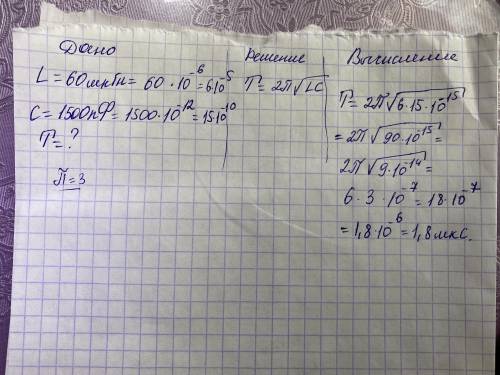 Дано
L = 60 мкГн = 60 · 10⁻⁶ = 6·10⁻⁵
C = 1500 пФ = 1500·10⁻¹² = 15·10⁻¹⁰
T = ?
П = 3
Решение
T = 2π√LC
Вычисление
T = 2π√6·15·10⁻¹⁵
= 2π√90·10⁻¹⁵ =
2π√9·10⁻¹⁴ =
6 · 3 · 10⁻⁷ = 18·10⁻⁷
= 1,8·10⁻⁶ = 1,8 мкс.